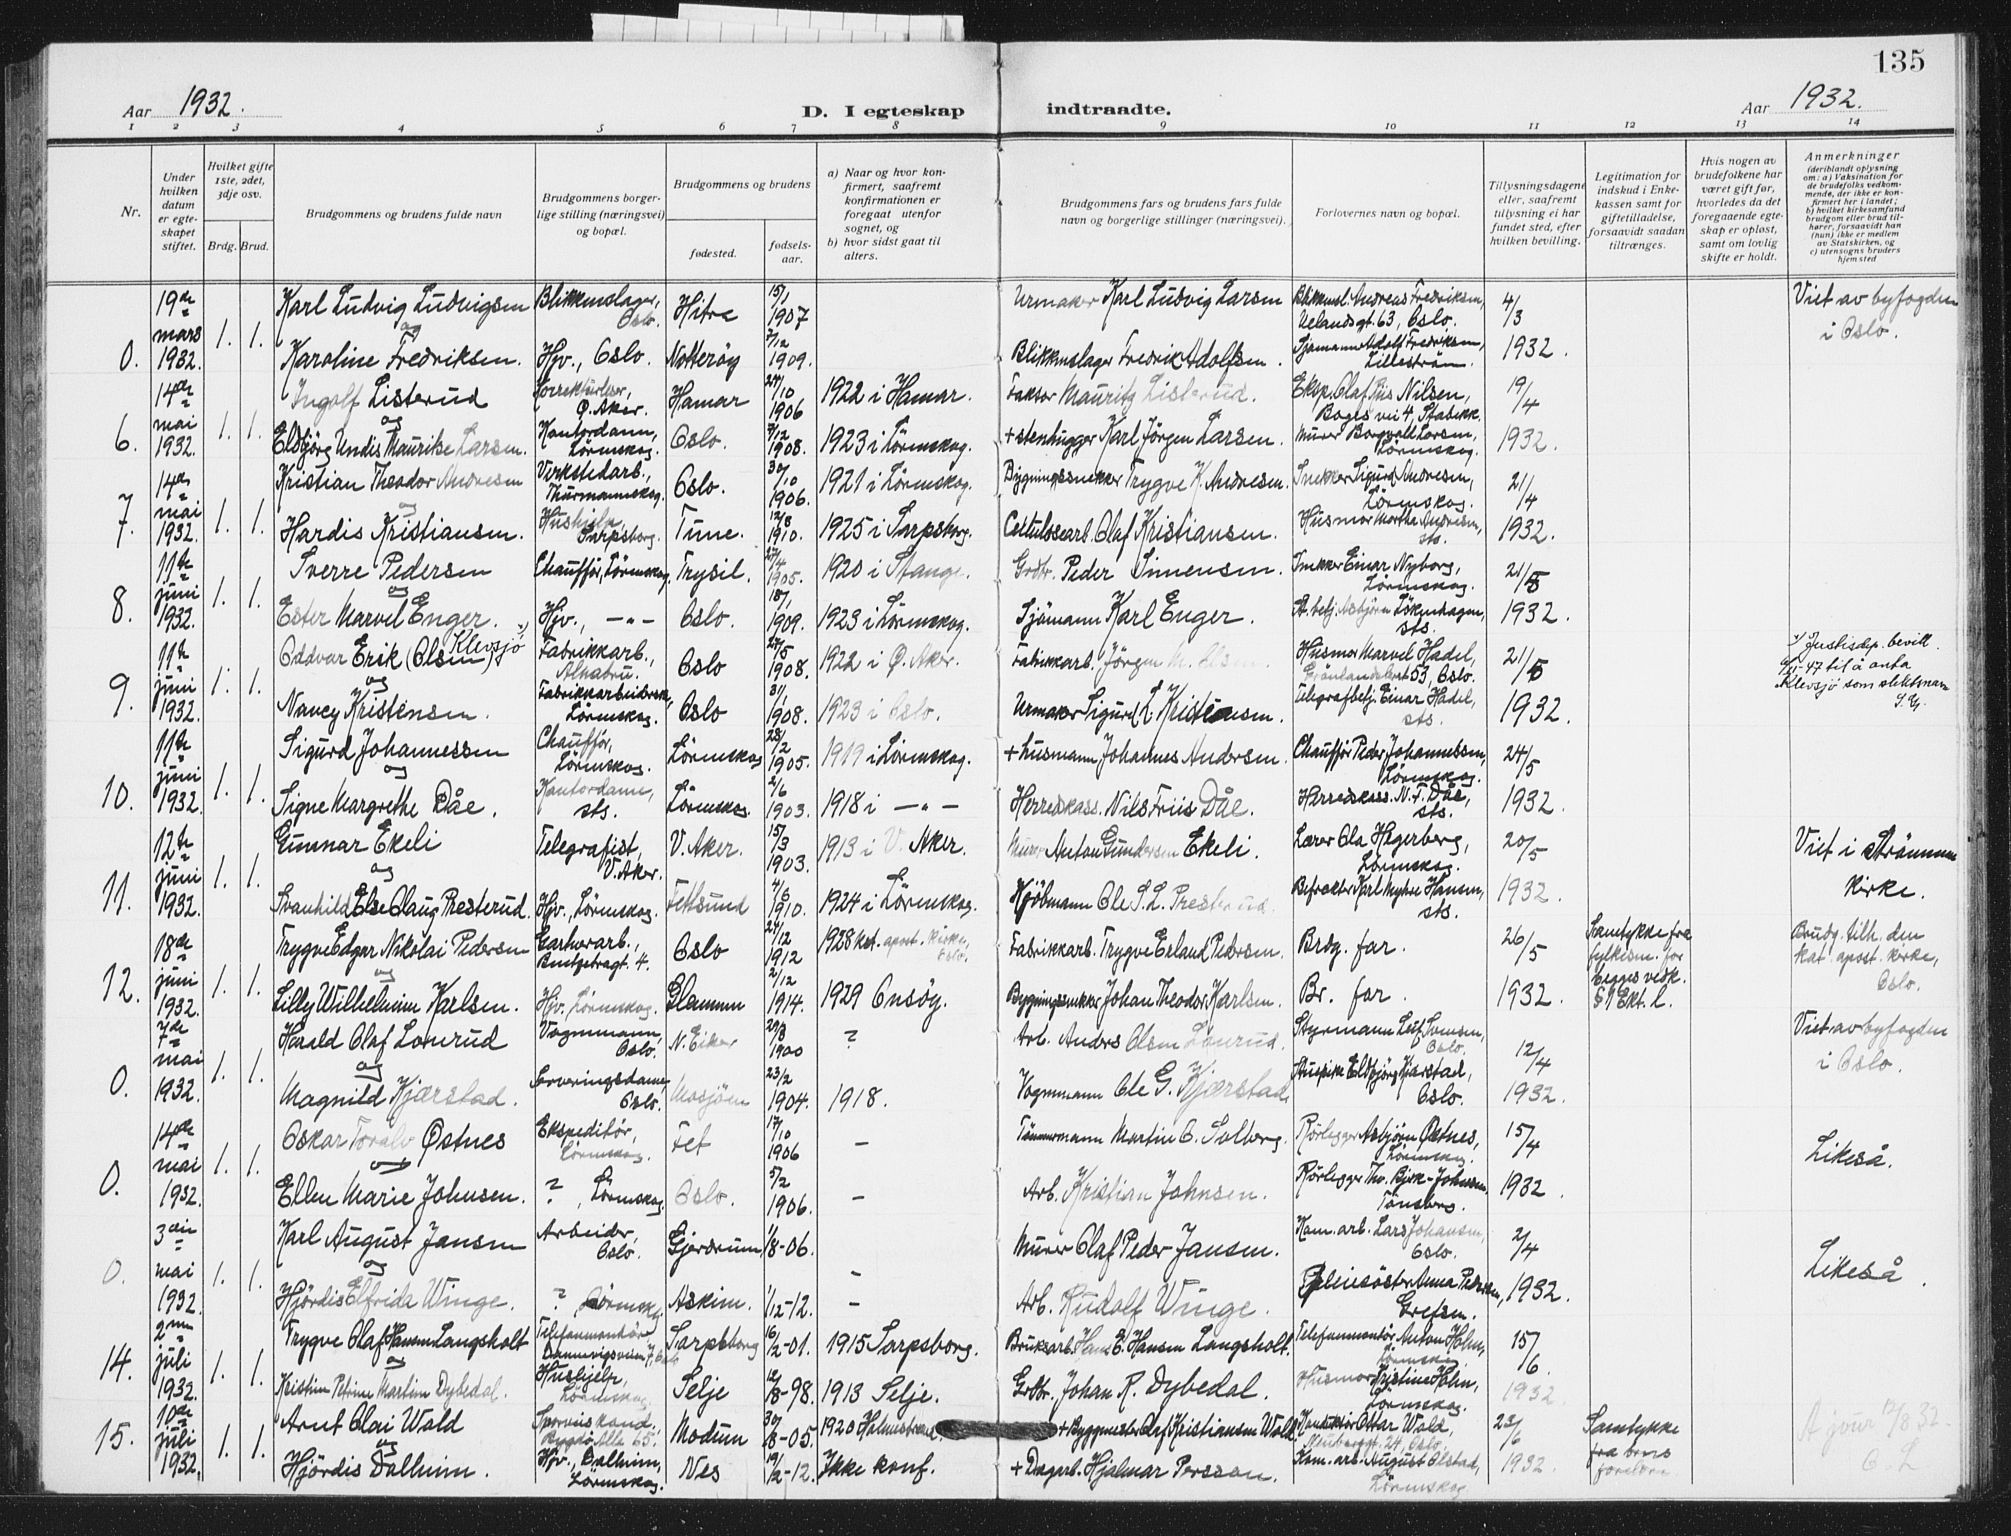 135
Aar 1932. D. I egteskap indtraadte. Aar 1932.
1 2 3 4 5 6 7 8 9 10 11 12 13 14
Nr.
Under hvilken datum er egteskapet stiftet.
Hvilket gifte 1ste, 2det, 3dje osv.
Brdg. Brud.
Brudgommens og brudens fulde navn
Brudgommens borgerlige stilling (næringsvei) og bopæl.
Brudgommens og brudens
fødested.
fødselsaar.
a) Naar og hvor konfirmert, saafremt konfirmationen er foregaat utenfor sognet, og
b) hvor sidst gaat til alters.
Brudgommens fars og brudens fars fulde navn og borgerlige stillinger (næringsvei).
Forlovernes navn og bopæl.
Tillysningsdagene eller, saafremt tillysning ei har fundet sted, efter hvilken bevilling.
Legitimation for indskud i Enkekassen samt for giftetilladelse, forsaavidt saadan tiltrænges.
Hvis nogen av brudefolkene har været gift før, hvorledes da det foregaaende egteskap er opløst, samt om lovlig skifte er holdt.
Anmerkninger
(deriblandt oplysning om: a) Vaksination for de brudefolks vedkommende, der ikke er konfirmert her i landet; b) hvilket kirkesamfund brudgom eller brud tilhører, forsaavidt han (hun) ikke er medlem av Statskirken, og c) utensogns bruders hjemsted
0. 19de mars 1932. 1. 1. Karl Ludvig Ludvigsen Blikkenslager, Oslo. Hitra 15/1 1907 Urmaker Karl Ludvig Larsen Blikkensl. Andreas Fredriksen, Uelandsgt. 63, Oslo. 4/3 1932. Viet av byfogden i Oslo.
og
Karoline Fredriksen. Hjv., Oslo. Nøtterøy 7/12 1909. Blikkenslager Fredrik Adolfsen. Sjømann Adolf Fredriksen, Lillestrøm.
6. 14de mai 1932. 1. 1. Ingolf Listerud Korrekturleser, Ø. Aker. Hamar 24/10 1906 1922 i Hamar. Faktor Mauritz Listerud. Eksp. Olaf Riis Nilsen, Boges vei 4, Stabekk. 19/4 1932.
og
Eldbjørg Undis Maurike Larsen. Kontordame, Lørenskog. Oslo. 7/12 1908. 1923 i Lørenskog. + stenhugger Karl Jørgen Larsen. Murer Borgvald Larsen, Lørenskog.
7. 14de mai 1932. 1. 1. Kristian Theodor Andresen Verkstedarb., Thurmannskog. Oslo. 30/10 1906. 1921 i Lørenskog. Bygningssnekker Trygve K. Andresen. Snekker Sigurd Andresen, Lørenskog. 21/4 1932.
og
Hardis Kristiansen. Hushjelp, Sarpsborg. Tune. 12/8 1910. 1925 i Sarpsborg. Cellulosearb. Olaf Kristiansen. Husmor Martha Andresen, sts.
8. 11te juni 1932. 1. 1. Sverre Pedersen Chauffør, Lørenskog. Trysil. 27/4 1905. 1920 i Stange. Grdbr. Peder Simensen. Snekker Einar Nyborg, Lørenskog. 21/5 1932.
og
Ester Marvel Enger. Hjv., — " — Oslo. 18/1 1909. 1923 i Lørenskog. Sjømann Karl Enger. St. betj. Asbjørn Løkenhagen, sts.
9. 11te juni 1932. 1. 1. Oddvar Erik (Olsen) Klevsjø x) Fabrikkarb., Alnabru. Oslo 27/5 1908. 1922 i Ø. Aker. Fabrikkarb. Jörgen M. Olsen. Husmor Marvel Hadel, Grønlandsleret 53, Oslo. 21/5 1932. x) Justisdep. bevill. -47 til å anta Klevsjø som slektsnavn
og
Nancy Kristensen. Fabrikkarbeiderske, Lørenskog. Oslo 31/1 1908. 1923 i Oslo. Urmaker Sigurd Kristensen. Telegrafbetj. Einar Hadel, sts.
10. 11te juni 1932. 1. 1. Sigurd Johannessen Chauffør, Lørenskog. Lørenskog 28/2 1905. 1919 i Lørenskog. + husmann Johannes Andersen. Chauffør Peder Johannessen, Lørenskog. 24/5 1932.
og
Signe Margrethe Dåe. Kontordame, sts. Lørenskog. 2/6 1903. 1918 i — " — Herredskass. Nils Friis Dåe. Herredskass. N. F. Dåe, sts.
11. 12te juni 1932. 1. 1. Gunnar Ekeli Telegrafist, V. Aker. V. Aker. 15/3 1903. 1913 i V. Aker. Murer Anton Gundersen Ekeli. Lærer Ola Hegerberg, Lørenskog. 20/5 1932. Viet i Strømmen kirke.
og
Svanhild Else Olaug Presterud. Hjv., Lørenskog. Fetsund 1910. 1924 i Lørenskog. Kjöbmann Ole S. L. Presterud. Befrakter Karl Myhre Hansen, sts.
12. 18de juni 1932. 1. 1. Trygve Edgar Nikolai Pedersen Garhverarb., 4. Oslo 24/12 1912 1928 kat. apost. kirke, Oslo. Fabrikkarb. Trygve Erland Pedersen. Brdg. far. 26/5 1932. Samtykke fra fylkesm. for begges vedk. § 1 Ekt. l. Brudg. tilh. den kat. apost. kirke, Oslo.
og
Lilly Wilhelmine Karlsen. Hjv. Lørenskog. Glemmen 2/12 1914. 1929 Onsøy. Bygningssnekker Johan Theodor Karlsen. Br. far.
0. 7de mai 1932. 1. 1. Harald Olaf Lonrud Vognmann, Oslo. N. Eiker 29/8 1900 ? Arb. Anders Olsen Lonrud. Styrmann Leif Svensen, Oslo. 12/4 1932. Viet av byfogden i Oslo.
og
Magnild Kjærstad. Serveringsdame, Oslo. Mosjøen 23/2 1904. 1918. Vognmann Ole G. Kjærstad. Stuepike Eldbjørg Kjærstad, Oslo.
0. 14de mai 1932. 1. 1. Oskar Toralv Østnes Ekspeditør, Lørenskog. Fet 17/10 1906 — Tömmermann Martin O. Solberg. Rørlegger Asbjørn Østnes, Lørenskog. 15/4 1932. Likeså.
og
Ellen Marie Johnsen. ? , Lørenskog. Oslo. 5/2 1906. — Arb. Kristian Johnsen. Rørlegger Th. Bjerk-Johnsen, Tønsberg.
0. 3die mai 1932. 1. 1. Karl August Jansen Arbeider, Oslo. Gjerdrum 1/8-06. — Murer Olaf Peder Jansen. Kom. arb. Lars Johansen, Oslo. 2/4 1932. Likeså.
og
Hjördis Elfrida Winge. ? Lørenskog. Askim. 1/12-12. — Arb. Rudolf Winge. Pleiesøster Anna Pedersen, Grefsen.
14. 2nen juli 1932. 1. 1. Trygve Olaf Hansen Langsholt Telefonmontør, Sarpsborg 16/2-01. 1915 Sarpsborg. Bruksarb. Hans E. Hansen Langsholt. Telefonmontør Anton Holm, Lørenskog. 15/6 1932.
og
Kristine Petrine Martine Dybedal. Hushjelp, Lørenskog Selje 12/8-98. 1913 Selje. Grdbr. Johan R. Dybedal. Husmor Kristine Holm, Lørenskog.
15. 10de juli 1932. 1. 1. Arnt Olai Wold Sporveiskond., Bygdø Alle 65. Modum 30/8-05. 1920 Holmestrand. + Byggmester Olaf Kristiansen Wold. Konduktør Ottar Wold, Oslo. 23/6 1932. Samtykke fra brns foreldre A jour 12/8 32. O. L
og
Hjördis Dalheim. Hjv., Dalheim, Lørenskog. Nes 19/2-12. Ikke konf. + Dagarb. Hjalmar Persson. Kom. arb. August Olstad, Lørenskog